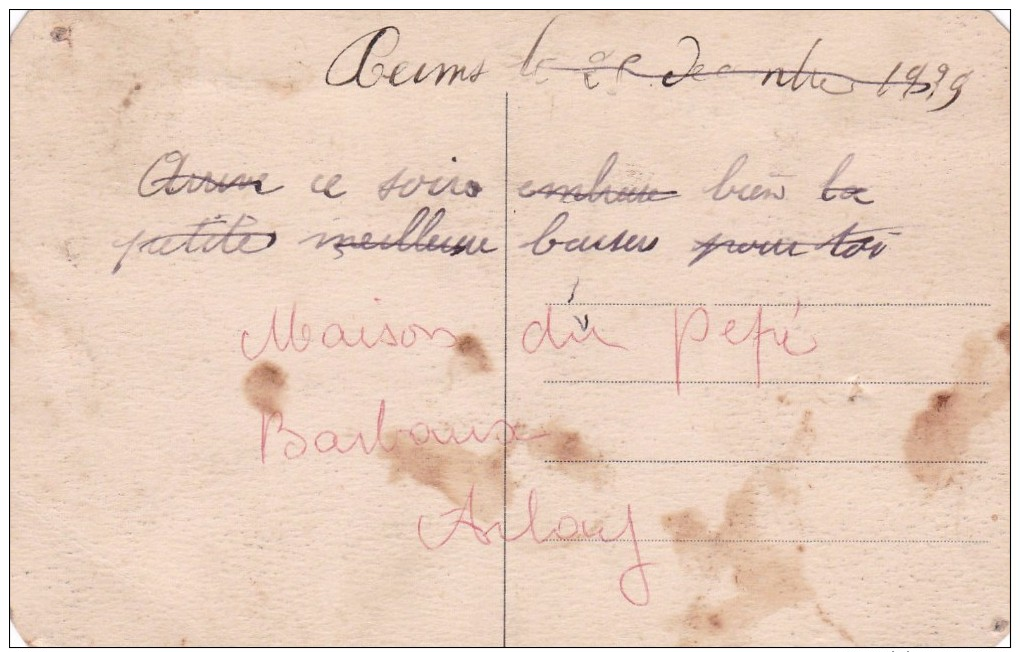 Reims le 28 decembre 1939
Arrive ce soir embrasse bien la
petite meilleur baiser pour toi
Maison du Pépé
Barbaux
Arlay